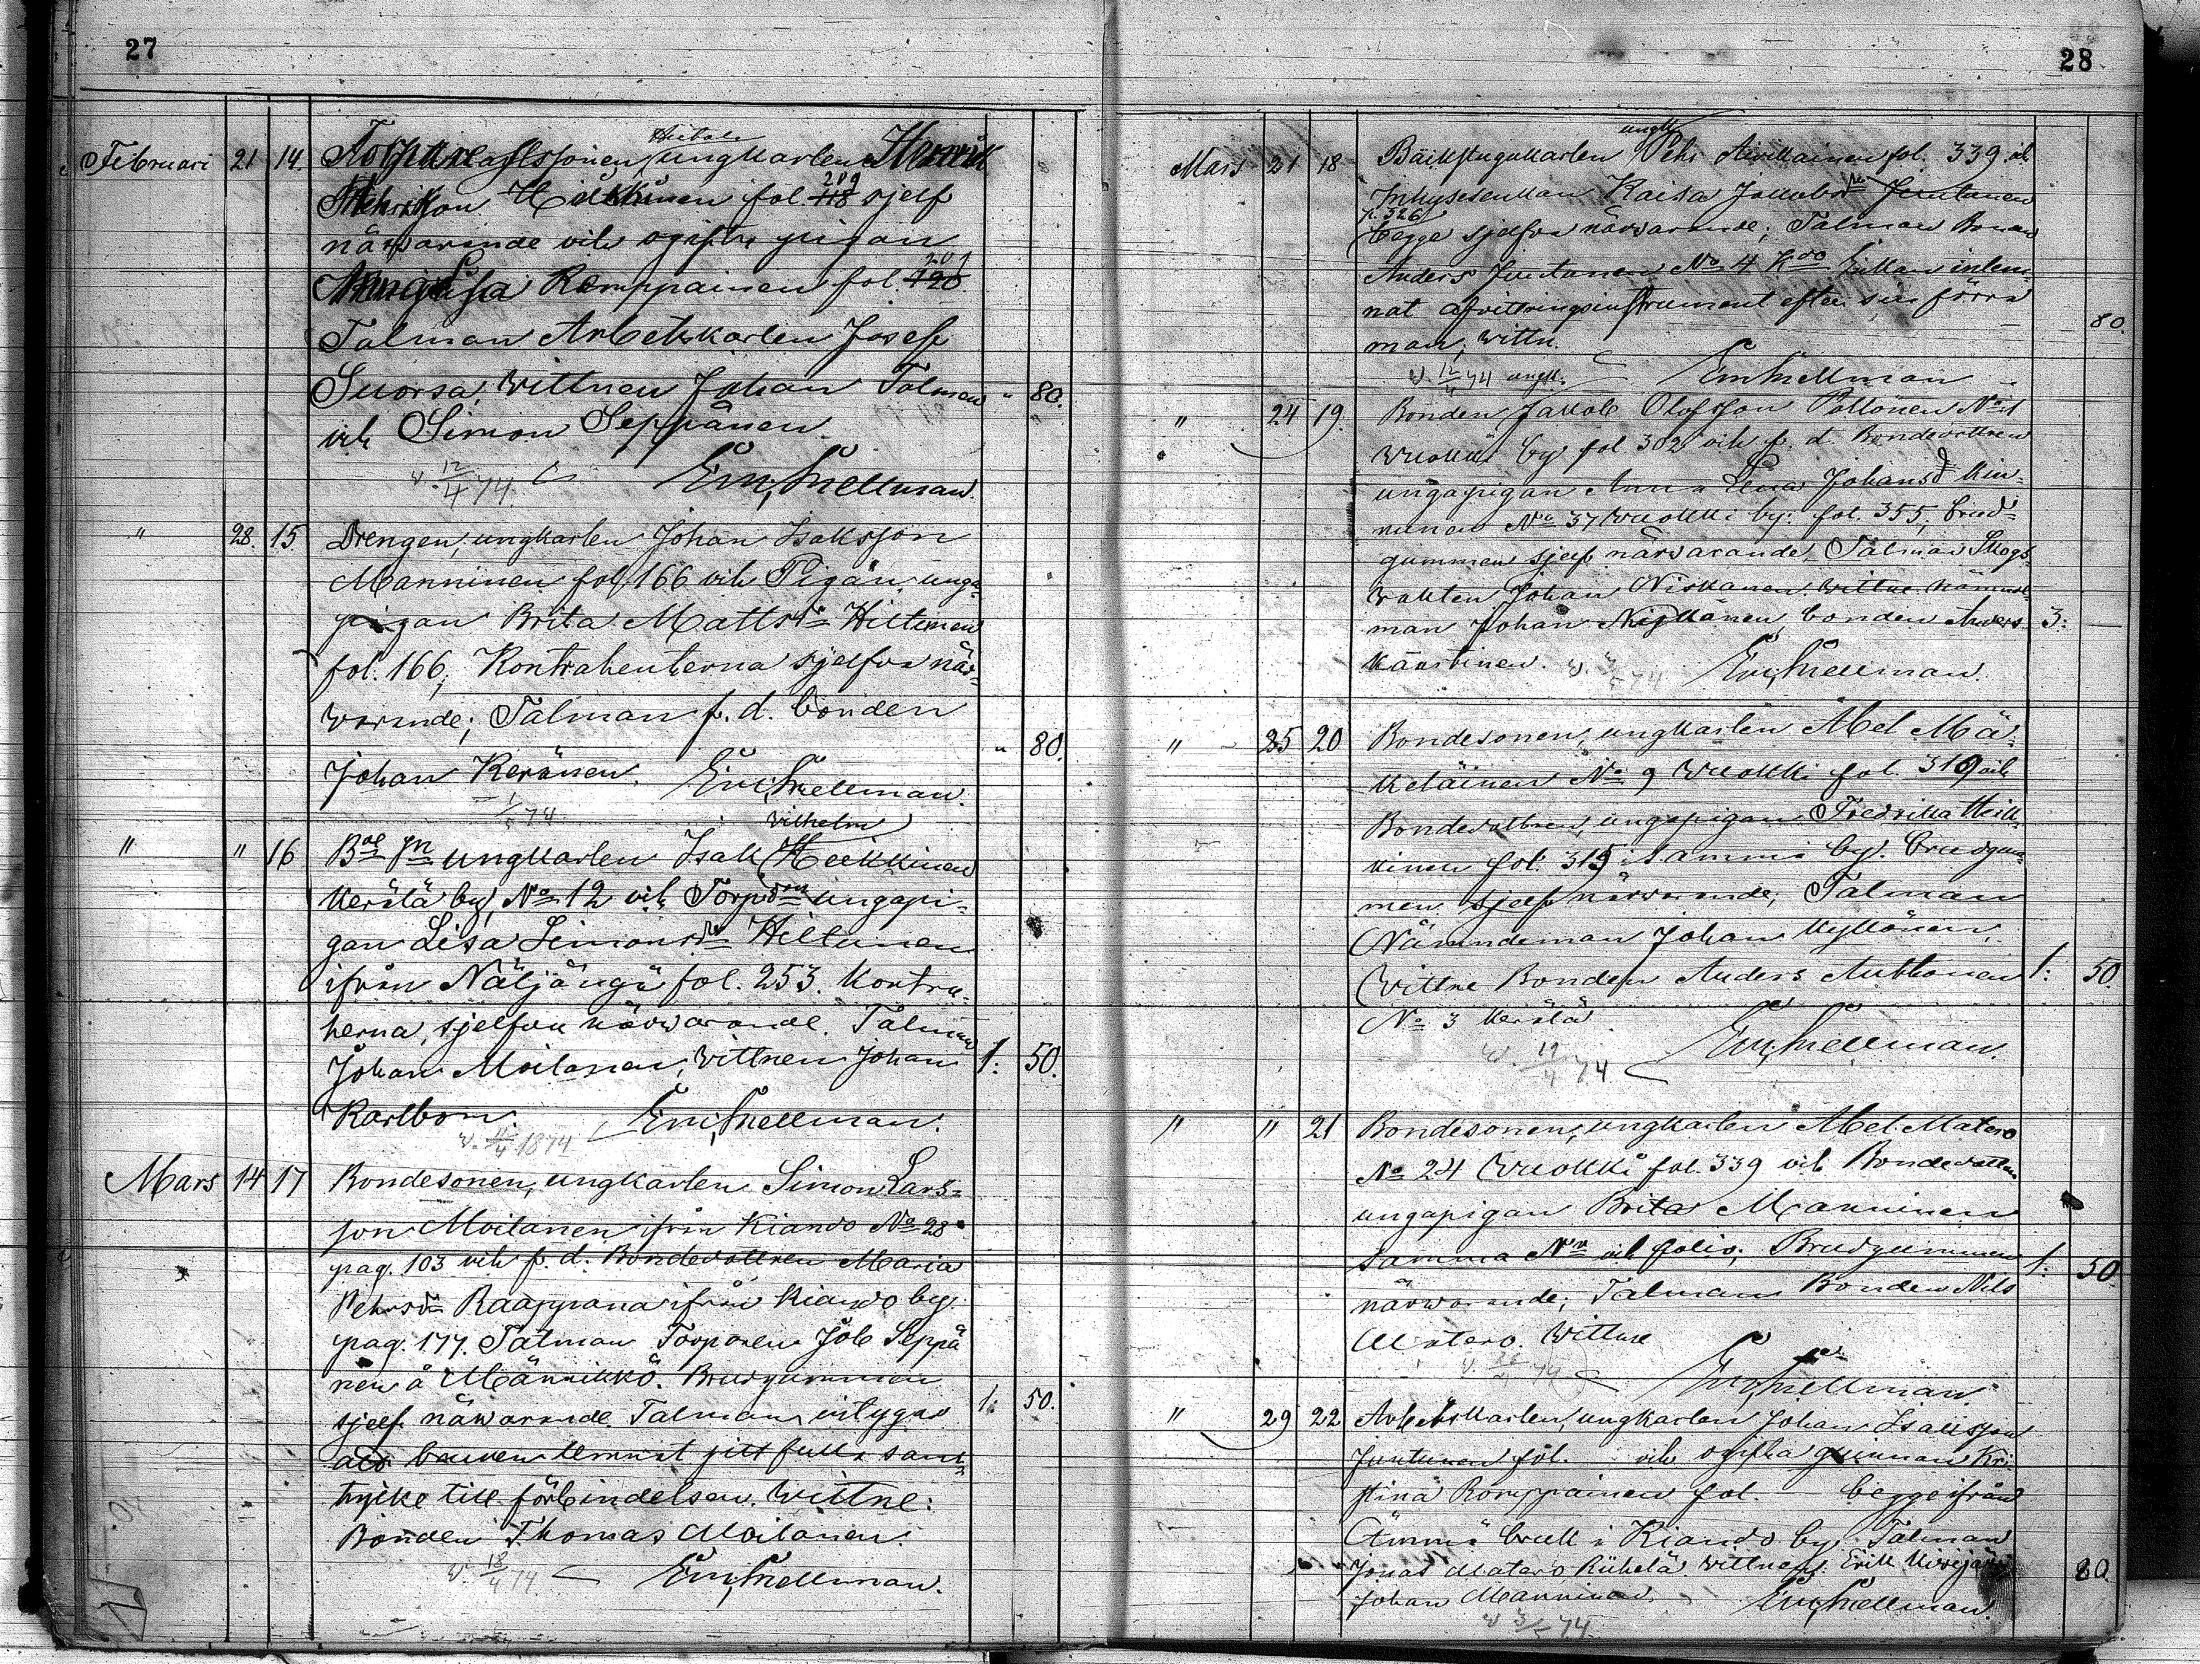 27
Februari 21 14. ungkarlen Henrik
Hietala
fol. 118 209 sjelf
närvarande och ogifta pigan
Romppainen fol. 120 209
Talman Arbetskarlen Josef
Suorsa, Wittnen Johan Talman " 80.
och Simon Seppänen
v. 12/4 74. Em, Snellman.
" 28. 15 Drengen, ungkarlen Johan Isaksson
Manninen fol. 166 och Pigan, unga-
pigan Brita Mattsdr Hiltunen
fol. 166; Kontrahenterna sjelfva när-
varande; Talman f. d. bonden
Johan Keränen. Em, Snellman. " 80.
1/5 74
Wilhelm
" " 16 ungkarlen Isak Heikkinen
Kerälä by, No 12 och ungapi-
gan Lisa Simonsdr Hiltunen
ifrån Näljängä fol. 253. Kontra-
herna, sjelfva närwarande. Talman
Johan Moilanen, Wittnen Johan 1. 50.
Karlbom. Em, Snellman.
v. /4 1874
Mars 14 17 Bondesonen, ungkarlen Simon Lars-
son Moilanen ifrån Kiando No 28
pag. 103 och f. d. Bondedottren Maria
Pehrsdr Raappana ifrån Kiando by
pag. 177. Talman Torparen Job Seppä
nen å Männikkö. Brudgummen
sjelf närvarande Talman intygar 1. 50.
att bruden lemnat sitt fulla sam-
tycke till förbindelsen. Wittne:
Bonden Thomas Moilanen.
v. 18/4 74 Em, Snellman.
28
ungk
Mars 21 18 Bäckstugukarlen Pehr Aivikainen fol. 339. och
Inhysesenkan Kaisa Jakobsdr Juntunen
p. 326
begge sjelfva närvarande; Talman Bonden
Anders Juntunen No 4 Kdo Enkan inlem-
nat afvittringsinstrument efter sin förra
man; Wittn. 80.
v. 12/4 74 Em, Snellman
" 24 19. Bonden Jakob Olofsson Pollönen No 1
Wuokki by fol 302 och f. d. Bondedottren
ungapigan Anna Lena Johansdr Kin-
nunen No 37 Wuokki by: fol. 355, brud-
gummen sjelf närvarande, Talman Skogs
vakten Johan Niskanen Wittne nämnde-
man Johan bonden Anders 3:
v. 74 Em, Snellman.
" 25 20 Bondesonen, ungkarlen Abel Mä-
keläinen No 9 Wuokki fol. 319 och
Bondedottren, ungapigan Fredrika Heik-
kinen fol. 315 i samma by. Brudgum-
men sjelf närvarande; Talman
Nämndeman Johan Kyllönen,
Wittne Bonden Anders Anttonen 1: 50
No 3 Kerälä
v. 19/4 74 Em, Snellman.
" " 21 Bondesonen, ungkarlen Abel Matero
No 24 Wuokki fol. 339 och Bondedottren
ungapigan Brita Manninen
samma No och folio; Brudgummen 1: 50
närwarande; Talman Bonden Nils
Matero. Wittne
Em, Snellman
" 29 22 Arbetskarlen, ungkarlen Johan Isaksson
Juntunen fol. och ogifta qvinnan Kri
stina Romppainen fol. begge ifrån
Ämmä bruk i Kiando by Talman
Jonas Matero Riihelä Wittnen: Erik 80.
Johan Manninen Em, Snellman
v. 3/5 74